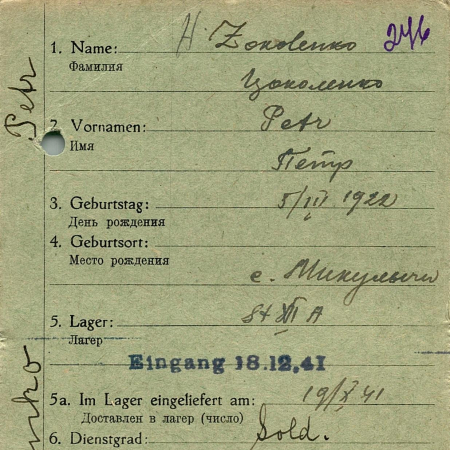 1. Name: Zokolenko 276
Фамилия
Цоколенко
2. Vornamen: Petr
Имя
Петр
3. Geburtstag: 5/III 1922
День рождения
4. Geburtsort:
Место рождения
с. Микуличи
5. Lager: St XII A
Лагер
Eingang 18.12.41
5a. Im Lager eingeliefert am: 19/X 41
Доставлен в лагер (число)
6. Dienstgrad: Sold.
Petr